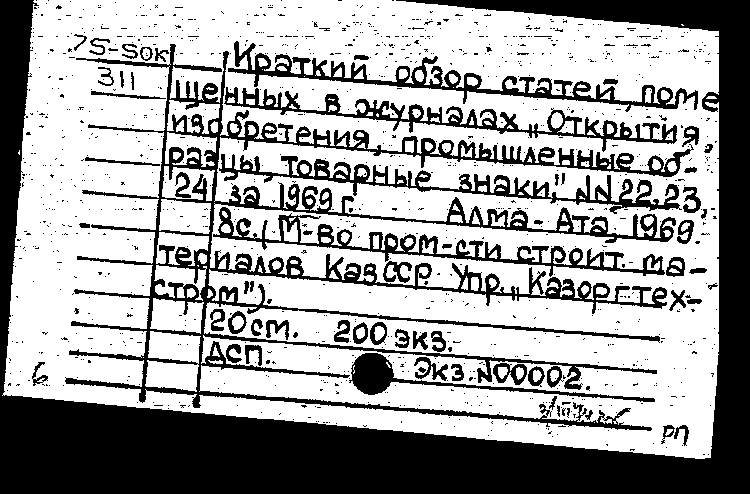 75-50к
311
Краткий обзор статей, поме
щенных в журналах „Открытия,
изобретения, промышленные об-
разцы, товарные знаки," NN 22, 23,
24 за 1969 г. Алма-Ата, 1969.
8с. (М-во пром-сти строит. ма-
териалов КазССР. Упр. „Казоргтех-
стром").
20 см. 200 экз.
ДСП. Экз. N00002.
6
РП